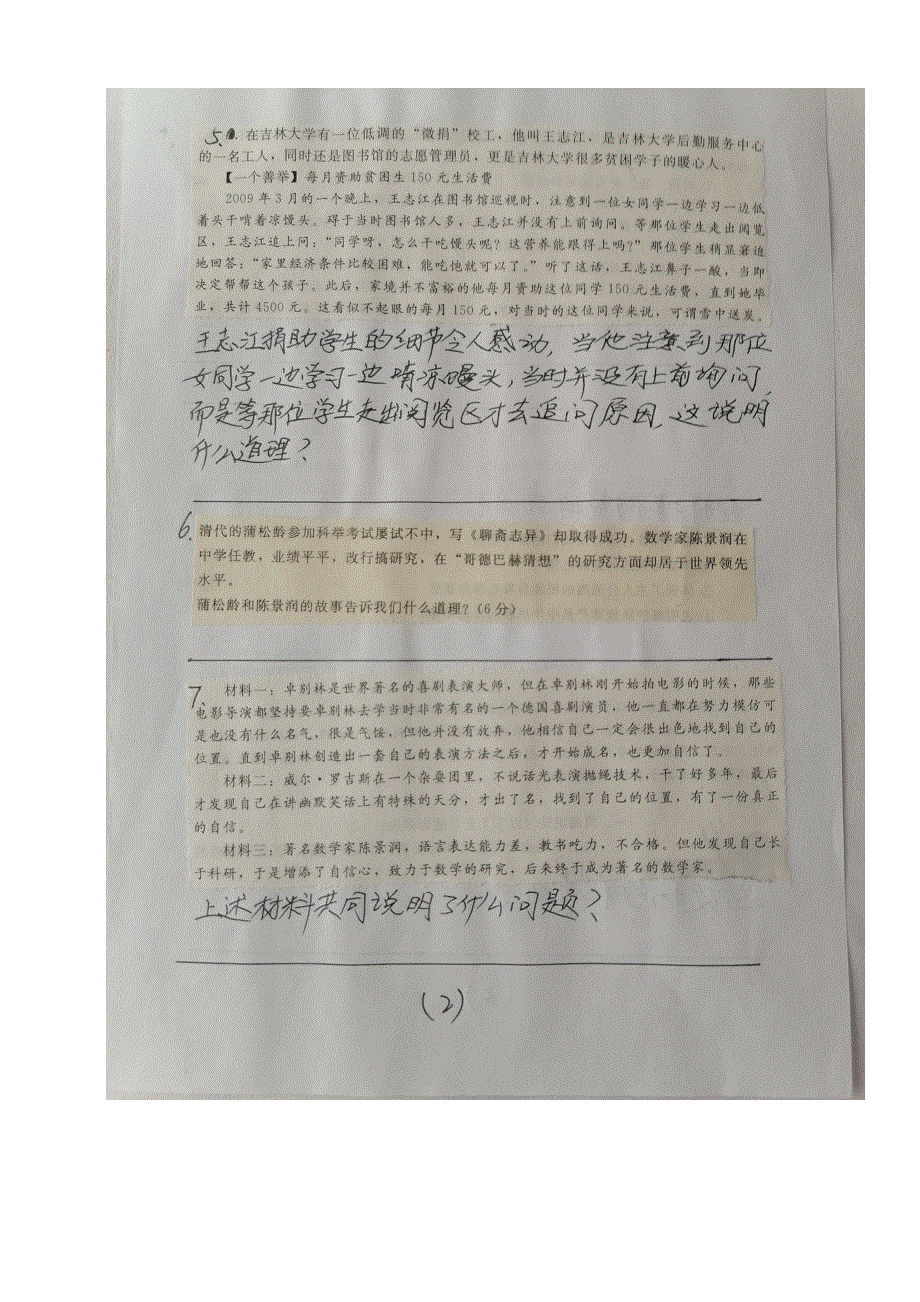 5. 在吉林大学有一位低调的“微捐”校工，他叫王志江，是吉林大学后勤服务中心
的一名工人，同时还是图书馆的志愿管理员，更是吉林大学很多贫困学子的暖心人。
【一个善举】每月资助贫困生 150 元生活费
2009 年 3 月的一个晚上，王志江在图书馆巡视时，注意到一位女同学一边学习一边低
着头干啃着凉馒头。碍于当时图书馆人多，王志江并没有上前询问。等那位学生走出阅览
区，王志江追上问：“同学呀，怎么干吃馒头呢？这营养能跟得上吗？”那位学生稍显窘迫
地回答：“家里经济条件比较困难，能吃饱就可以了。”听了这话，王志江鼻子一酸，当即
决定帮帮这个孩子。此后，家境并不富裕的他每月资助这位同学 150 元生活费，直到她毕
业，共计 4500 元。这看似不起眼的每月 150 元，对当时的这位同学来说，可谓雪中送炭。
王志江捐助学生的细节令人感动，当他注意到那位
女同学一边学习一边啃凉馒头，当时并没有上前询问，
而是等那位学生走出阅览区才去追问原因，这说明
什么道理？
6. 清代的蒲松龄参加科举考试屡试不中，写《聊斋志异》却取得成功。数学家陈景润在
中学任教，业绩平平，改行搞研究，在“哥德巴赫猜想”的研究方面却居于世界领先
水平。
蒲松龄和陈景润的故事告诉我们什么道理？（6 分）
7. 材料一：卓别林是世界著名的喜剧表演大师，但在卓别林刚开始拍电影的时候，那些
电影导演都坚持要卓别林去学当时非常有名的一个德国喜剧演员，他一直都在努力模仿可
是也没有什么名气，很是气馁。但他并没有放弃，他相信自己一定会很出色地找到自己的
位置。直到卓别林创造出一套自己的表演方法之后，才开始成名，也更加自信了。
材料二：威尔·罗吉斯在一个杂耍团里，不说话光表演抛绳技术，干了好多年，最后
才发现自己在讲幽默笑话上有特殊的天分，才出了名，找到了自己的位置，有了一份真正
的自信。
材料三：著名数学家陈景润，语言表达能力差，教书吃力，不合格。但他发现自己长
于科研，于是增添了自信心，致力于数学的研究，后来终于成为著名的数学家。
上述材料共同说明了什么问题？
(2)